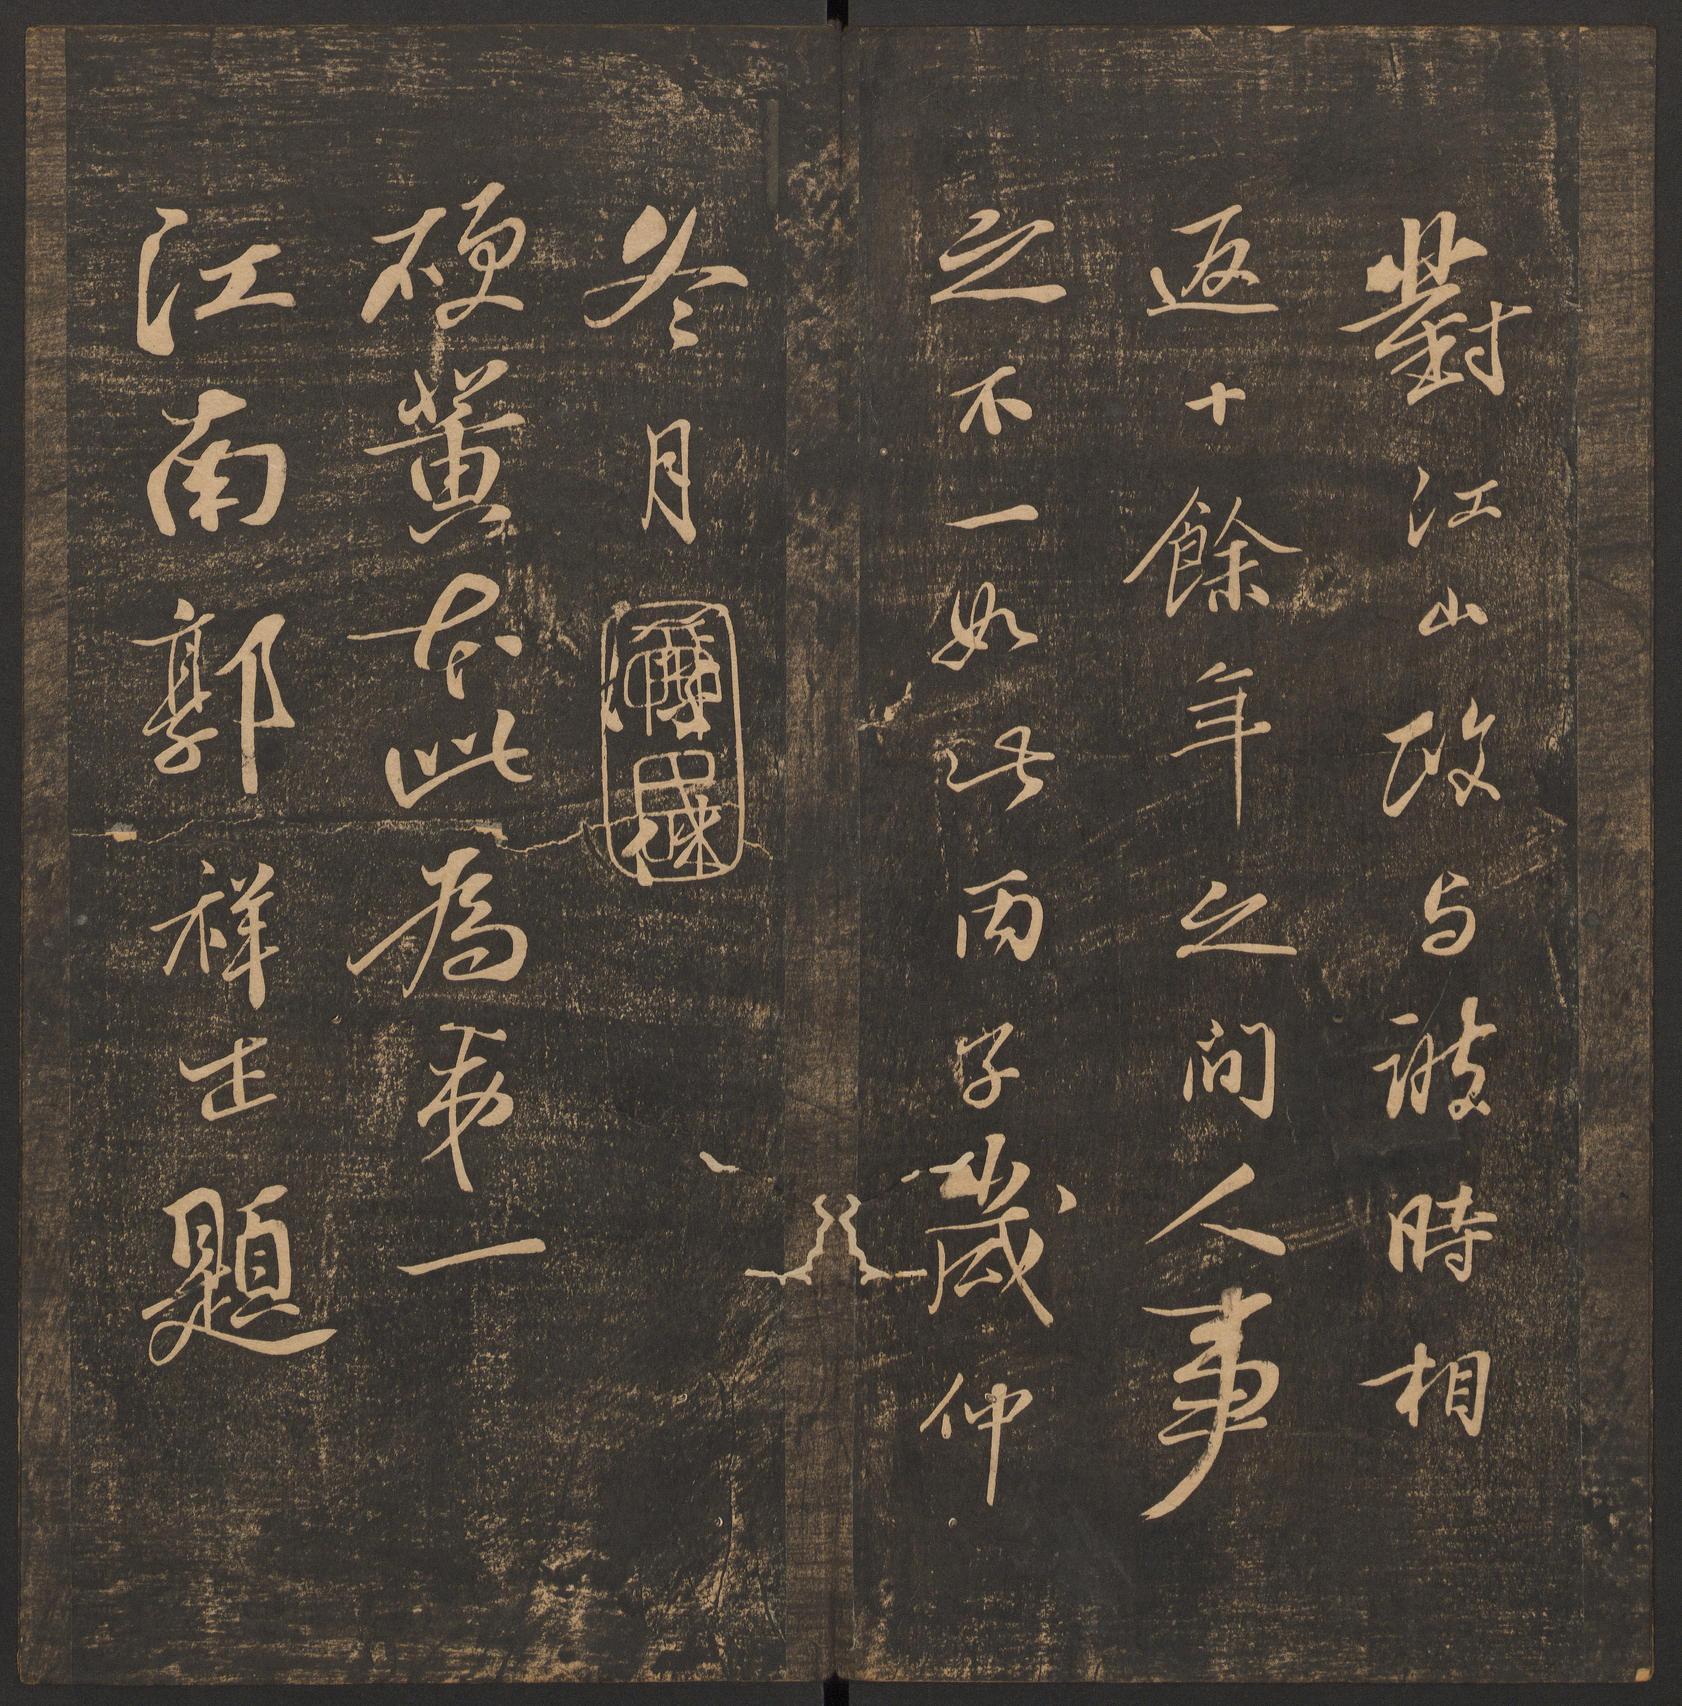 對江山政与跋時相
返十餘年之間人事
之不一如此丙子歲仲
冬月
硬黃本此為第一
江南郭祥正題